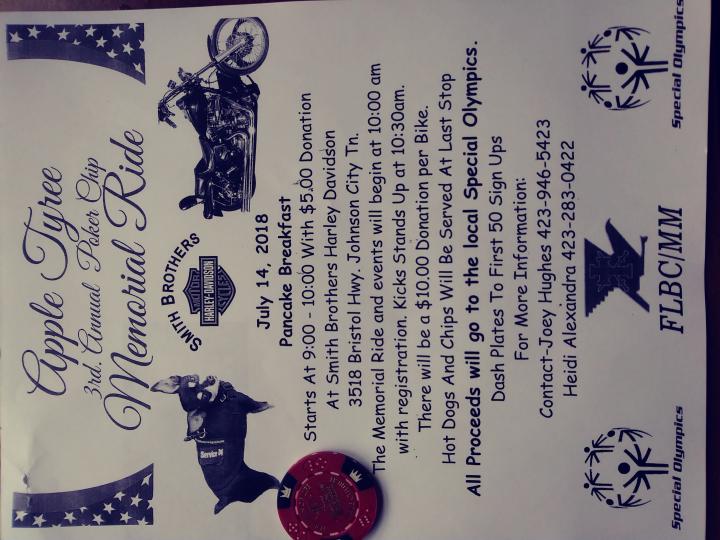 Apple Tyree
3rd. Annual Poker Chip
Memorial Ride
SMITH BROTHERS
HARLEY-DAVIDSON
Service
July 14, 2018
Pancake Breakfast
Starts At 9:00 - 10:00 With $5.00 Donation
At Smith Brothers Harley Davidson
3518 Bristol Hwy. Johnson City Tn.
The Memorial Ride and events will begin at 10:00 am
with registration. Kicks Stands Up at 10:30am.
There will be a $10.00 Donation per Bike.
Hot Dogs And Chips Will Be Served At Last Stop
All Proceeds will go to the local Special Olympics.
Dash Plates To First 50 Sign Ups
For More Information:
Contact-Joey Hughes 423-946-5423
Heidi Alexandra 423-283-0422
Special Olympics
FLBC/MM
Special Olympics